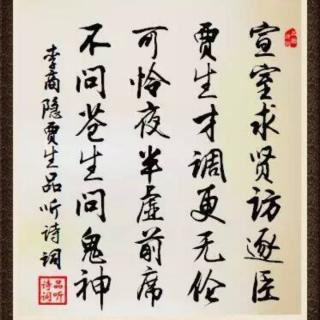 宣室求贤访逐臣
贾生才调更无伦
可怜夜半虚前席
不问苍生问鬼神
李商隐贾生品听诗词
品听
诗词